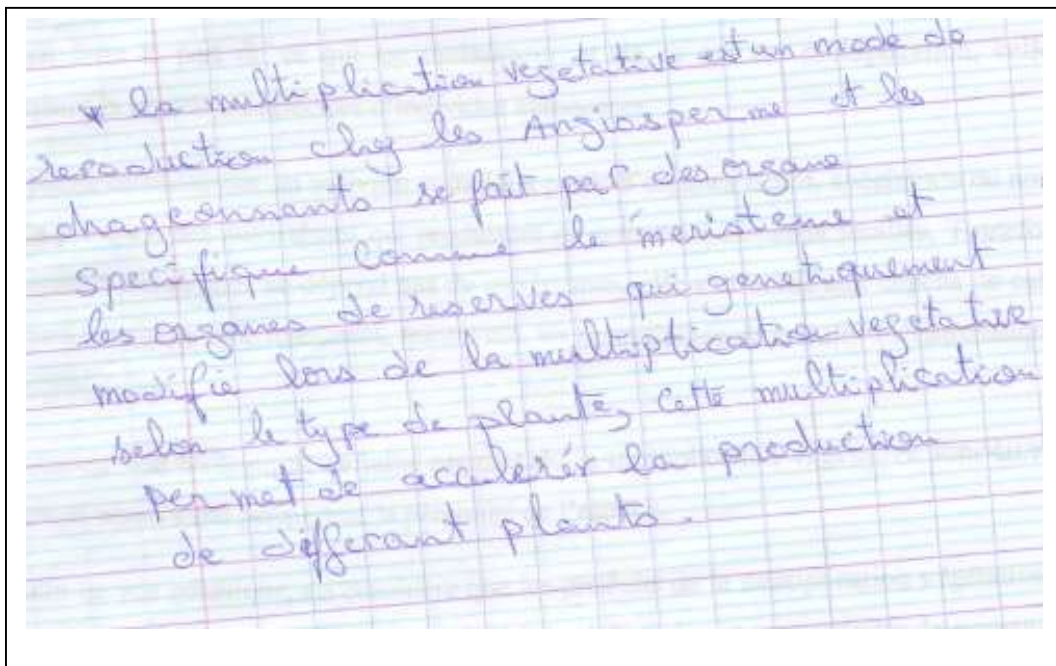 * la multiplication vegetative est un mode de
reroduction chez les Angiosperme et les
drageonnants se fait par des organe
Specifique Comme le meristeme et
les organes de reserves qui genetiquement
modifie lors de la multiptication vegetative
selon le type de plante, Cette multiplication
permet de acculerér la production
de differant plants.